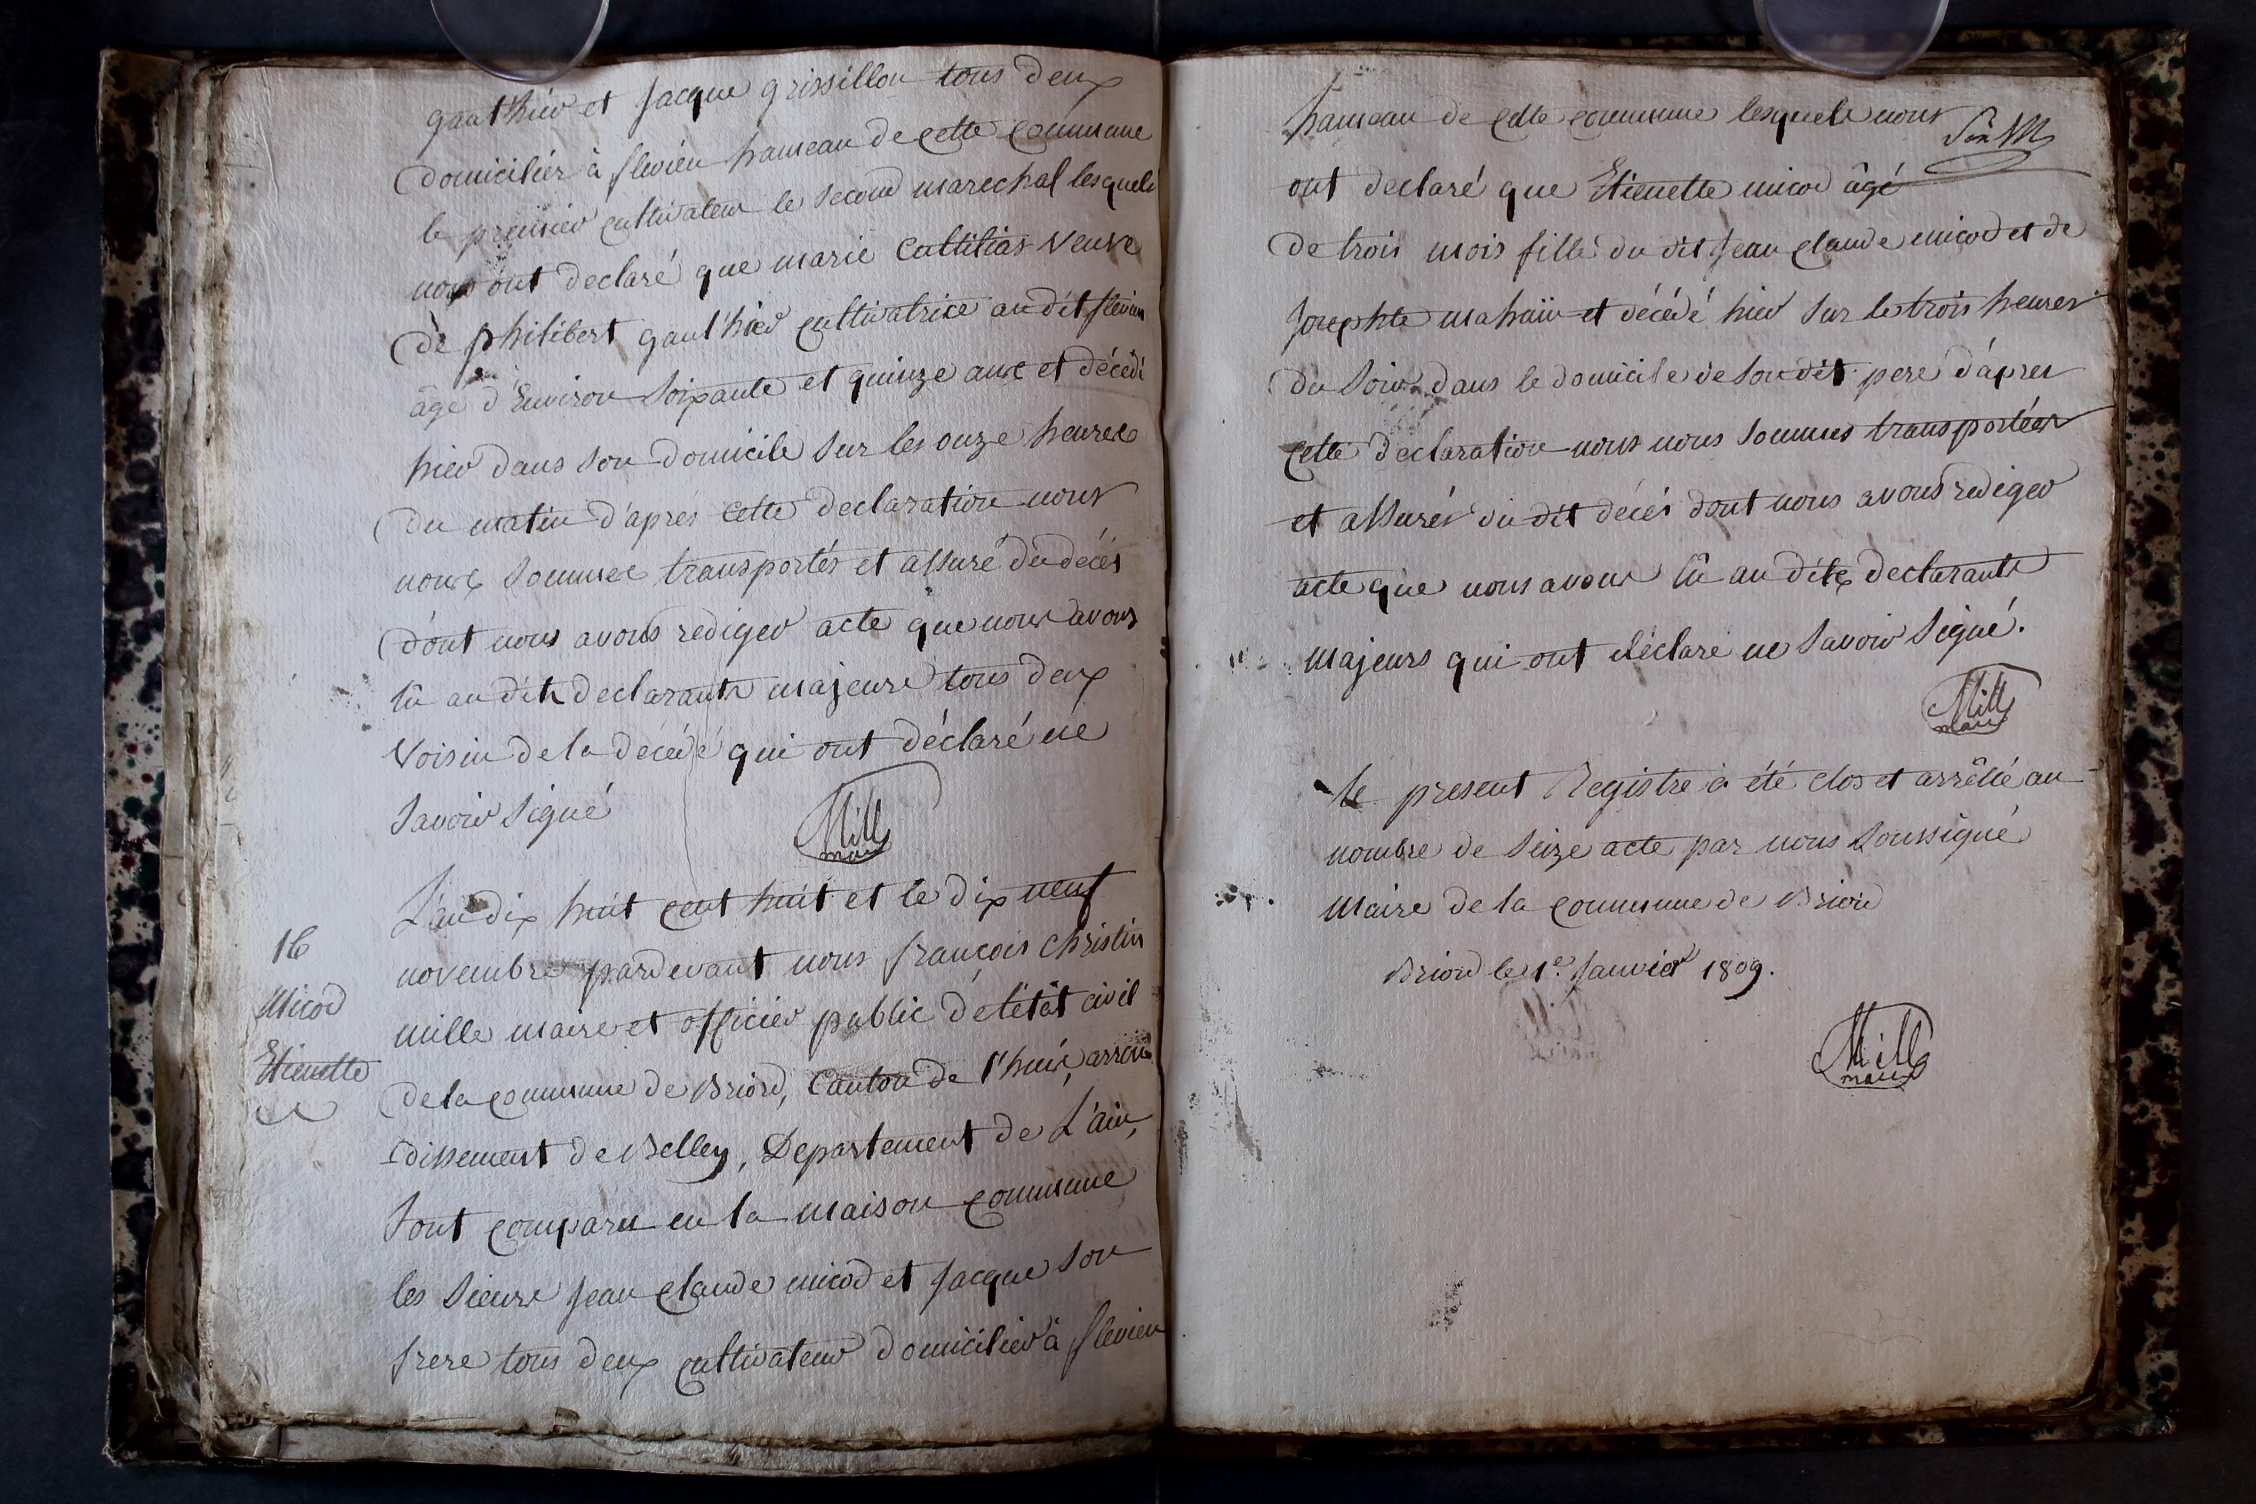 gaul'hier et Jacque grissillon tous deux
domicilier à flevieu hameau de cette commune
le premier cultivateur le second marechal lesquels
nous ont declaré que marie Cattilias veuve
de philibert gaul'hier cultivatrice au dit flevieu
âgé d'Environ Soixante et quinze ans et décédé
hier dans son domicile sur les onze heures
du matin d'aprés cette declaration nous
nous sommes transportés et assuré du décés
dont nous avons rediger acte que nous avons
lû au dits declarants majeurs tous deux
Voisin de la décédé qui ont déclaré ne
savoir signé
Mill
maire
L'an dix huit cent huit et le dix neuf
16
novembre pardevant nous françois christin
Micod
mille maire et officier public de l'état civil
Etienette
de la commune de Briord, Canton de l'huis, arron
-dissement de Belley, Departement de L'ain,
Sont comparu en la maison commune
les Sieurs Jean claude micod et Jacque son
frere tous deux cultivateur domicilier à flevieu
hameau de cette commune lesquels nous
ont declaré que Etienette micod âgé
de trois mois fille du dit Jean claude micod et de
Josephte et décédé hier sur le trois heures
du soir dans le domicile de son dit pere d'aprés
cette declaration nous nous sommes transportées
et assurés du dit décés dont nous avons rediger
acte que nous avons lû au dits declarants
majeurs qui ont déclaré ne savoir signé.
Mill
maire
le present Registre à été clos et arrêtté au
nombre de seize acte par nous soussigné
Maire de la commune de Briord
Briord le 1e. Janvier 1809.
Mill
maire